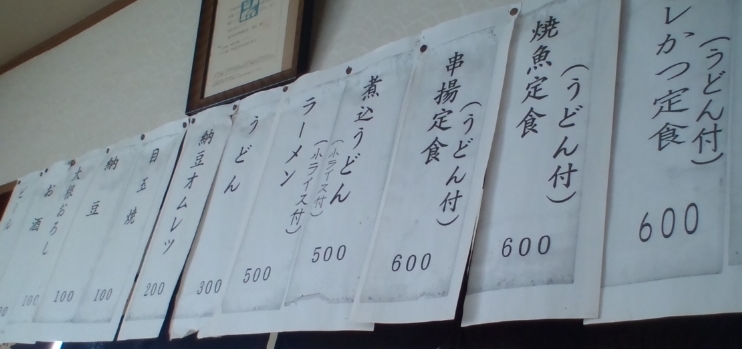 レかつ定食
(うどん付)
600
焼魚定食
(うどん付)
600
串揚定食
(うどん付)
600
煮込うどん
(小ライス付)
500
ラーメン
(小ライス付)
500
うどん
300
納豆オムレツ
200
目玉焼
100
納豆
100
大根おろし
100
お酒